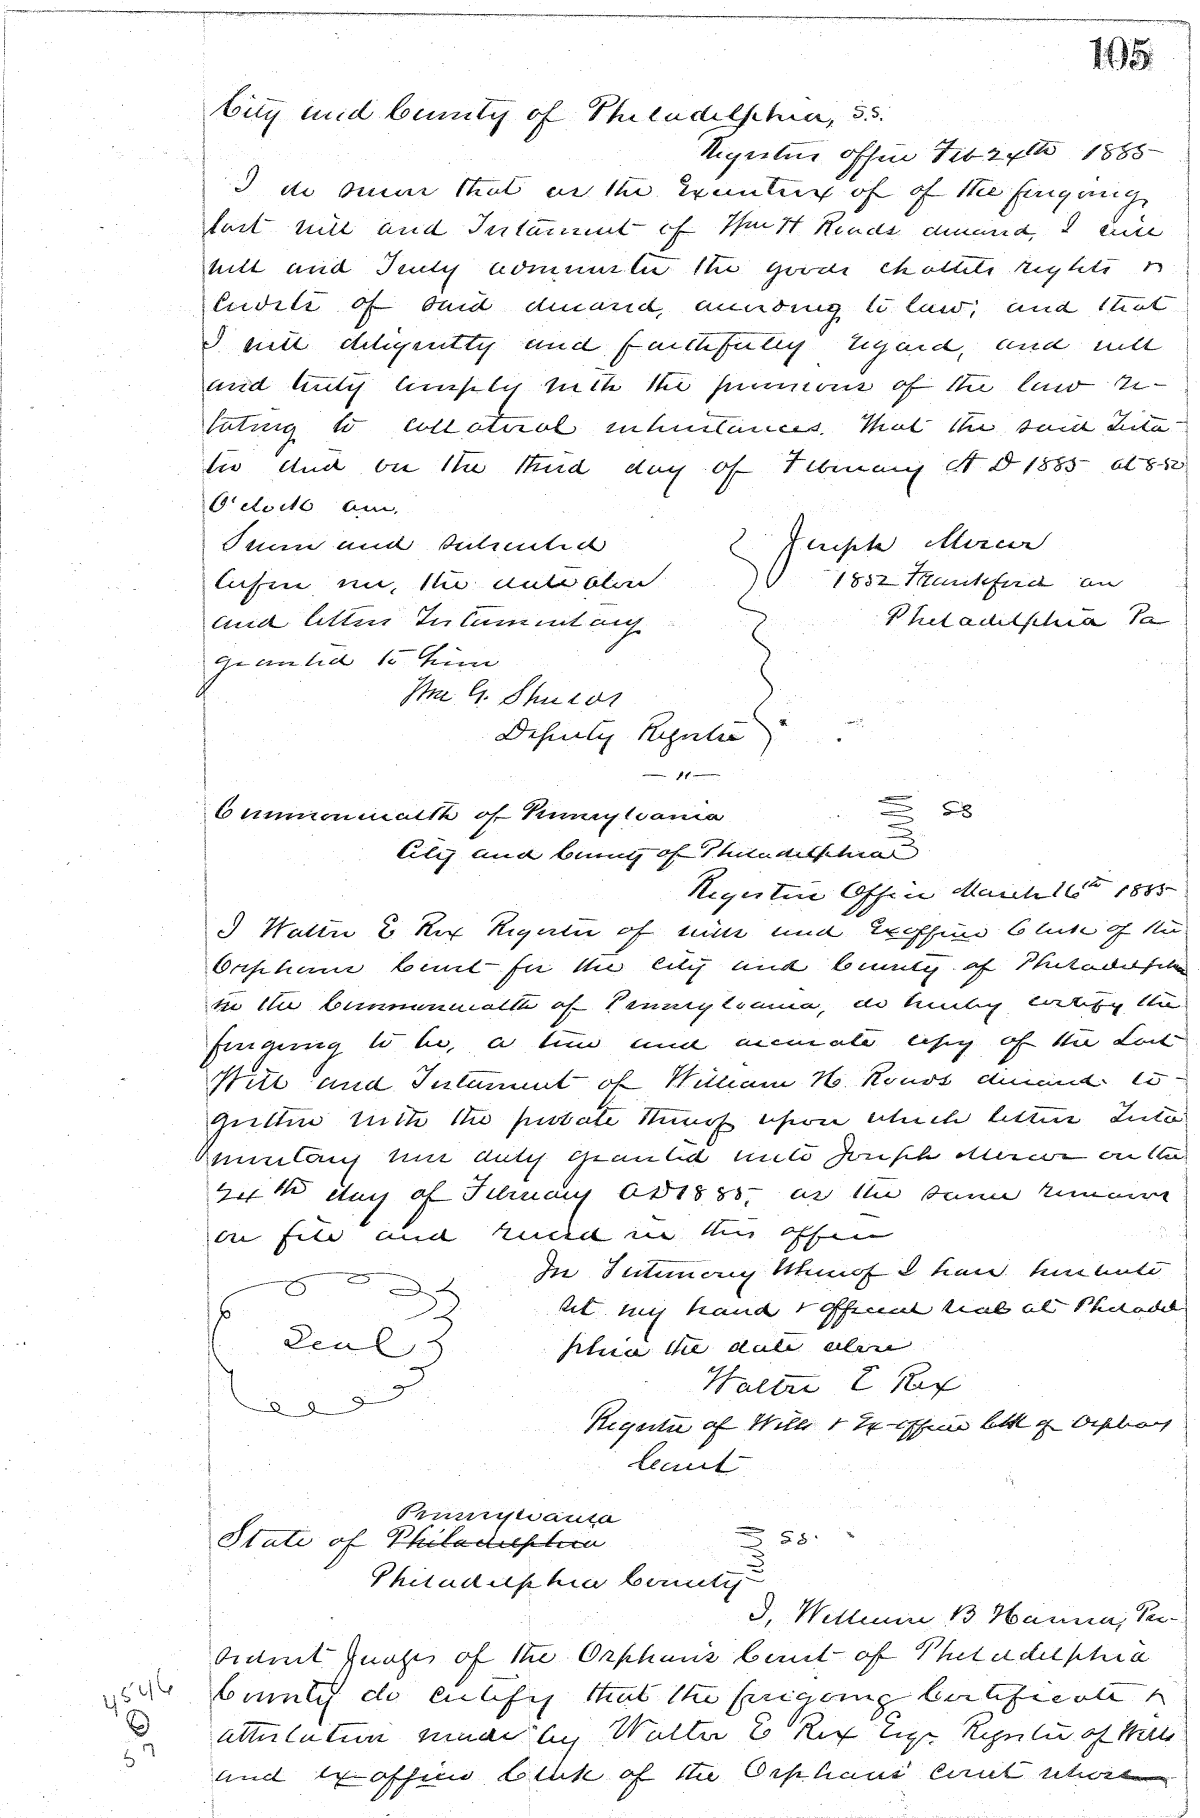 105
City and County of Philadelphia, S.S.
Registers office Feb 24th 1885
I do swear that as the Executrix of of the foregoing
last will and Testament of Wm H Roads deceased, I will
well and Truly administer the goods chattels rights &
Credits of said deceased, according to law; and that
I will diligently and faithfully regard, and well
and truly comply with the provisions of the law re-
lating to collateral inheritances. That the said Testa-
tor died on the third day of February A D 1885 at 8.50
O'clock am.
Sworn and subscribed
before me, the date above
and letters Testamentary
granted to him
Joseph Mercer
1852 Frankford av
Philadelphia Pa
Wm G. Shields
Deputy Register
Commonwealth of Pennsylvania SS
City and County of Philadelphia
Registers Office March 16th 1885
I Walter E Rex Register of wills and Exofficio Clerk of the
Orphans Court for the City and County of Philadelphia
in the Commonwealth of Pennsylvania, do hereby certify the
foregoing to be, a true and accurate copy of the Last
Will and Testament of William H. Roads deceased to-
gether with the probate thereof upon which letters Testa
mentary were duly granted unto Joseph Mercer on the
24th day of February AD 1885, as the same remains
on file and record in this office
In Testimony Whereof I have hereunto
set my hand & official seal at Philadel
phia the date above
Seal
Walter E Rex
Register of Wills & Ex officio Clk of Orphans
Court
Pennsylvania
State of Philadelphia SS.
Philadelphia County
I, William B Hanna, Pre-
sident Judge of the Orphans Court of Philadelphia
County do certify that the foregoing Certificate &
attestation made by Walter E Rex Esqr. Register of Wills
and ex officio Clerk of the Orphans' Court whose
4546
57